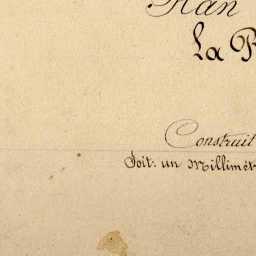 Plan
La
Construit
Soit: un Millimèt